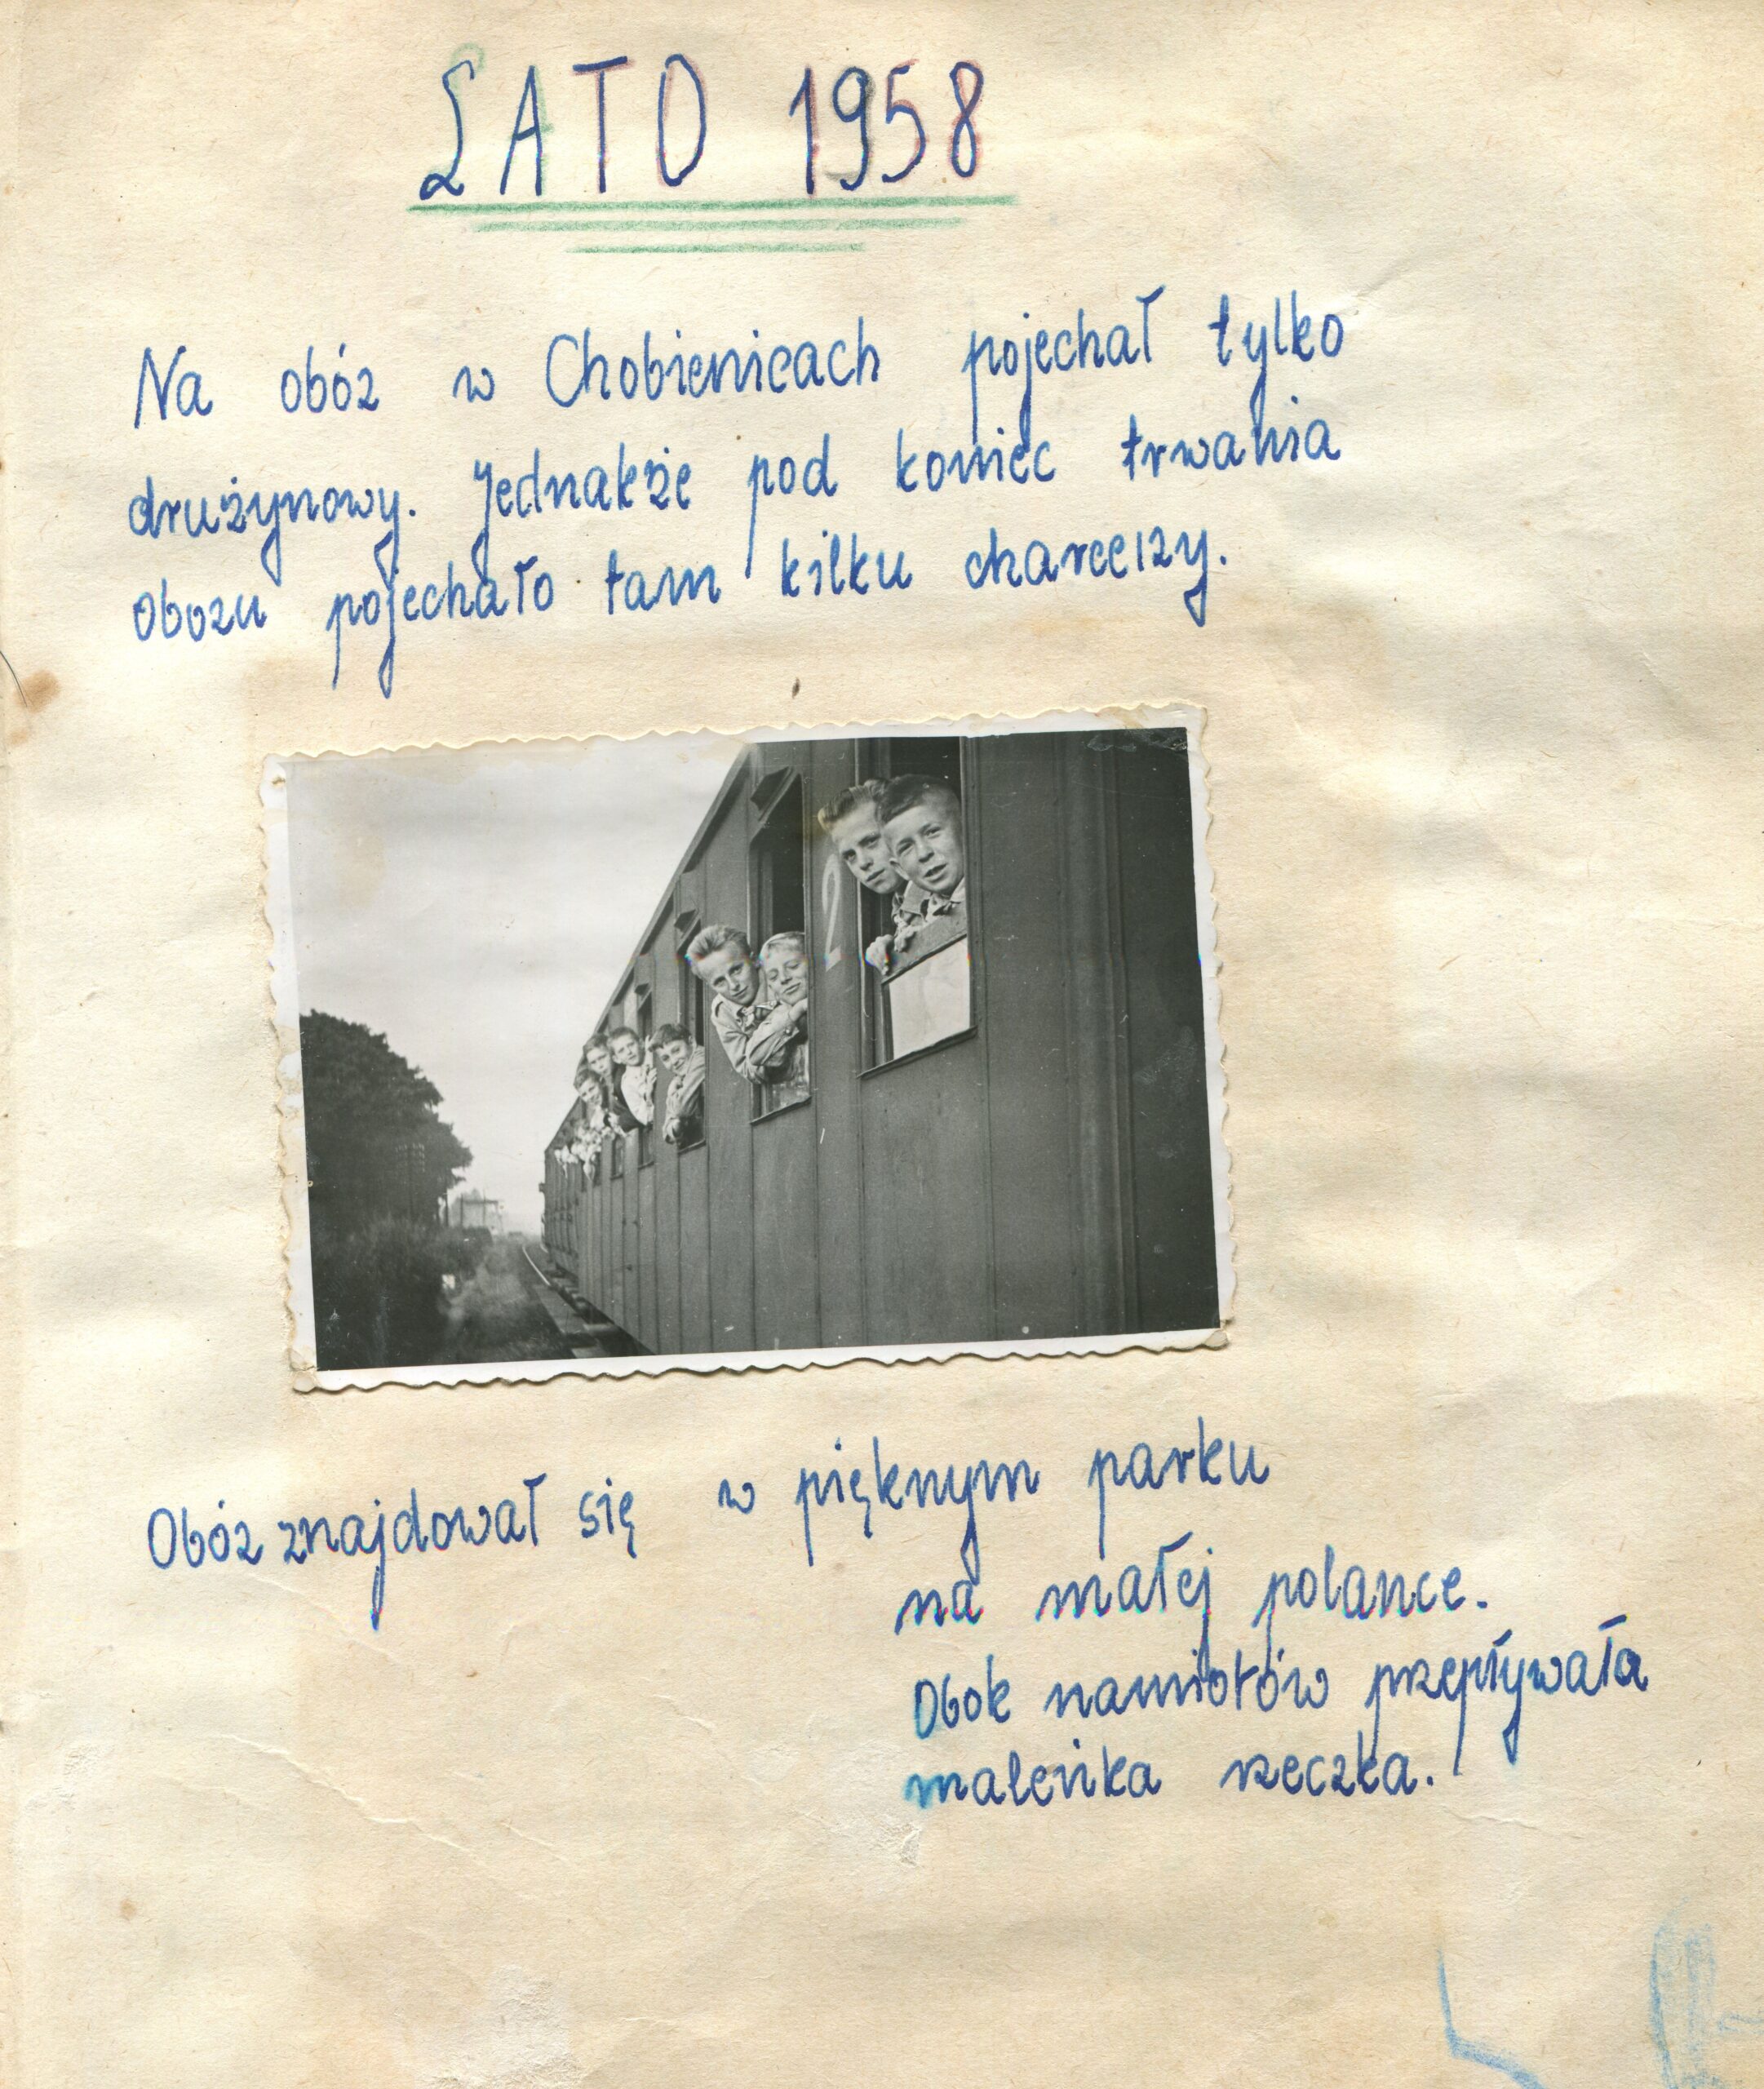 LATO 1958
Na obóz w Chobienicach pojechał tylko
drużynowy. Jednakże pod koniec trwania
obozu pojechało tam kilku charcerzy.
2
Obóz znajdował się w pięknym parku
na małej polance.
Obok namiotów przepływała
maleńka rzeczka.